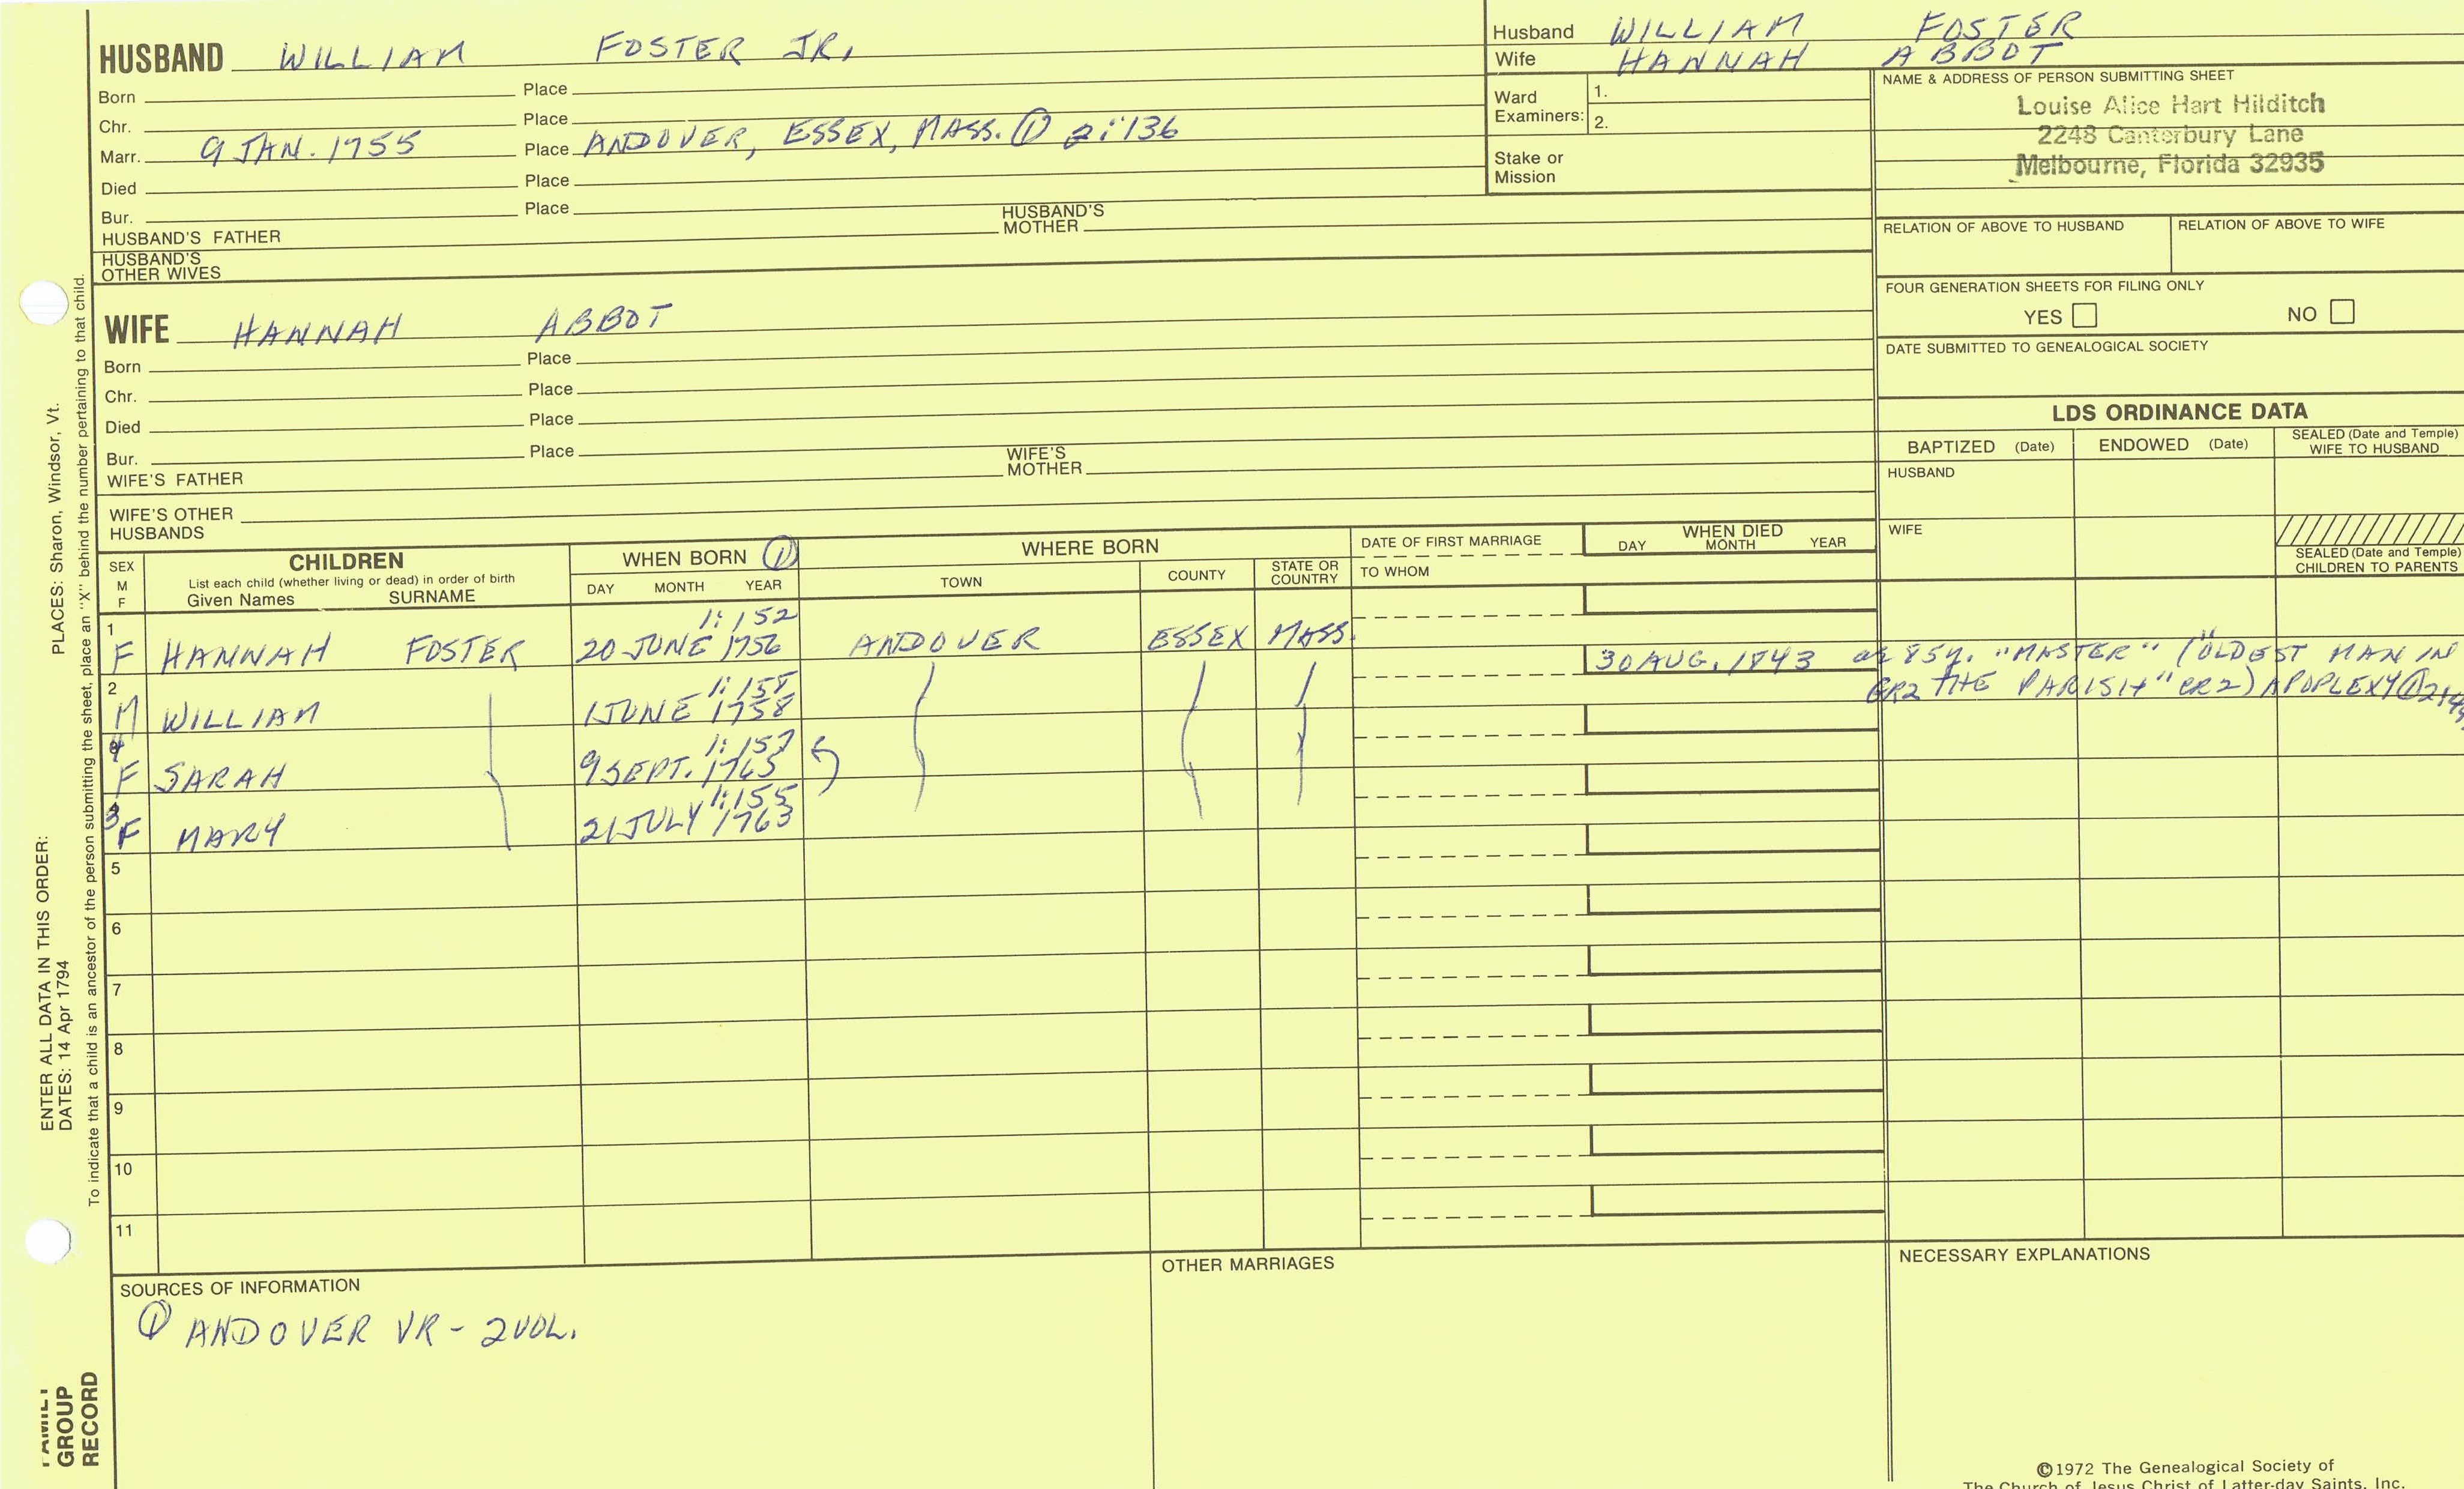 HUSBAND WILLIAM FOSTER JR.
Born Place
Chr. Place
Marr. 9 JAN. 1755 Place ANDOVER, ESSEX, MASS. ① 2:136
Died Place
Bur. Place
HUSBAND'S FATHER HUSBAND'S MOTHER
HUSBAND'S OTHER WIVES
Husband WILLIAM FOSTER
Wife HANNAH ABBOT
Ward Examiners: 1.
2.
Stake or Mission
NAME & ADDRESS OF PERSON SUBMITTING SHEET
Louise Alice Hart Hilditch
2248 Canterbury Lane
Melbourne, Florida 32935
RELATION OF ABOVE TO HUSBAND RELATION OF ABOVE TO WIFE
FOUR GENERATION SHEETS FOR FILING ONLY
YES NO
DATE SUBMITTED TO GENEALOGICAL SOCIETY
WIFE HANNAH ABBOT
Born Place
Chr. Place
Died Place
Bur. Place
WIFE'S FATHER WIFE'S MOTHER
WIFE'S OTHER HUSBANDS
LDS ORDINANCE DATA
BAPTIZED (Date) ENDOWED (Date) SEALED (Date and Temple) WIFE TO HUSBAND
HUSBAND
WIFE
SEALED (Date and Temple) CHILDREN TO PARENTS
SEX M F
CHILDREN
List each child (whether living or dead) in order of birth
Given Names SURNAME
WHEN BORN ①
DAY MONTH YEAR
WHERE BORN
TOWN COUNTY STATE OR COUNTRY
DATE OF FIRST MARRIAGE
TO WHOM
WHEN DIED
DAY MONTH YEAR
1:152
1 F HANNAH FOSTER 20 JUNE 1756 ANDOVER ESSEX MASS.
30 AUG. 1843 ae 85y. "MASTER" ("OLDEST MAN IN
GR2 THE PARISH" CR2) APOPLEXY ①
1:158
2 M WILLIAM 1 JUNE 1758
1:157
4 F SARAH 9 SEPT. 1765
1:155
3 F MARY 21 JULY 1763
5
6
7
8
9
10
11
SOURCES OF INFORMATION
① ANDOVER VR - 2 VOL.
OTHER MARRIAGES
NECESSARY EXPLANATIONS
©1972 The Genealogical Society of
The Church of Jesus Christ of Latter-day Saints, Inc.
PLACES: Sharon, Windsor, Vt.
ENTER ALL DATA IN THIS ORDER:
DATES: 14 Apr 1794
To indicate that a child is an ancestor of the person submitting the sheet, place an "X" behind the number pertaining to that child.
FAMILY
GROUP
RECORD